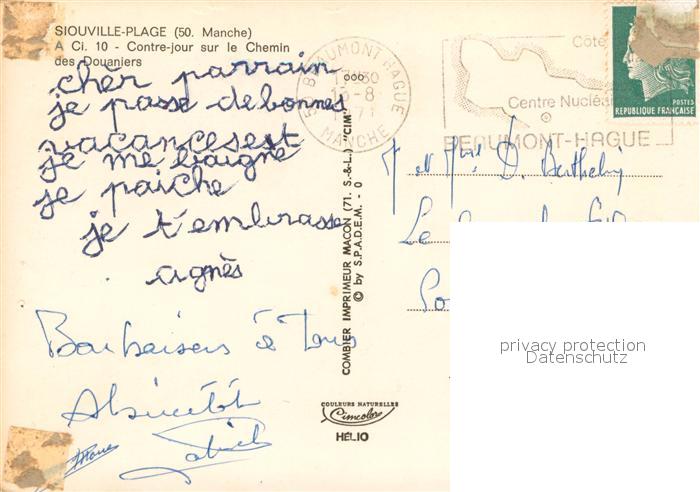 SIOUVILLE-PLAGE (50. Manche)
A Ci. 10 - Contre-jour sur le Chemin
des Douaniers
cher parrain
je passe de bonnes
vacances est
je me baigne
je paiche
je t'embrasse
agnès
Bons baisers à Tous
A bientôt
BEAUMONT HAGUE
MANCHE
Côte
Centre Nucléa
BEAUMONT-HAGUE
POSTES
REPUBLIQUE FRANÇAISE
M et Mme D. Berthelin
Le
COMBIER IMPRIMEUR MACON (71. S.-&-L.) "CIM"
© by S.P.A.D.E.M. - 0
COULEURS NATURELLES
Cimcolor
HÉLIO
privacy protection
Datenschutz